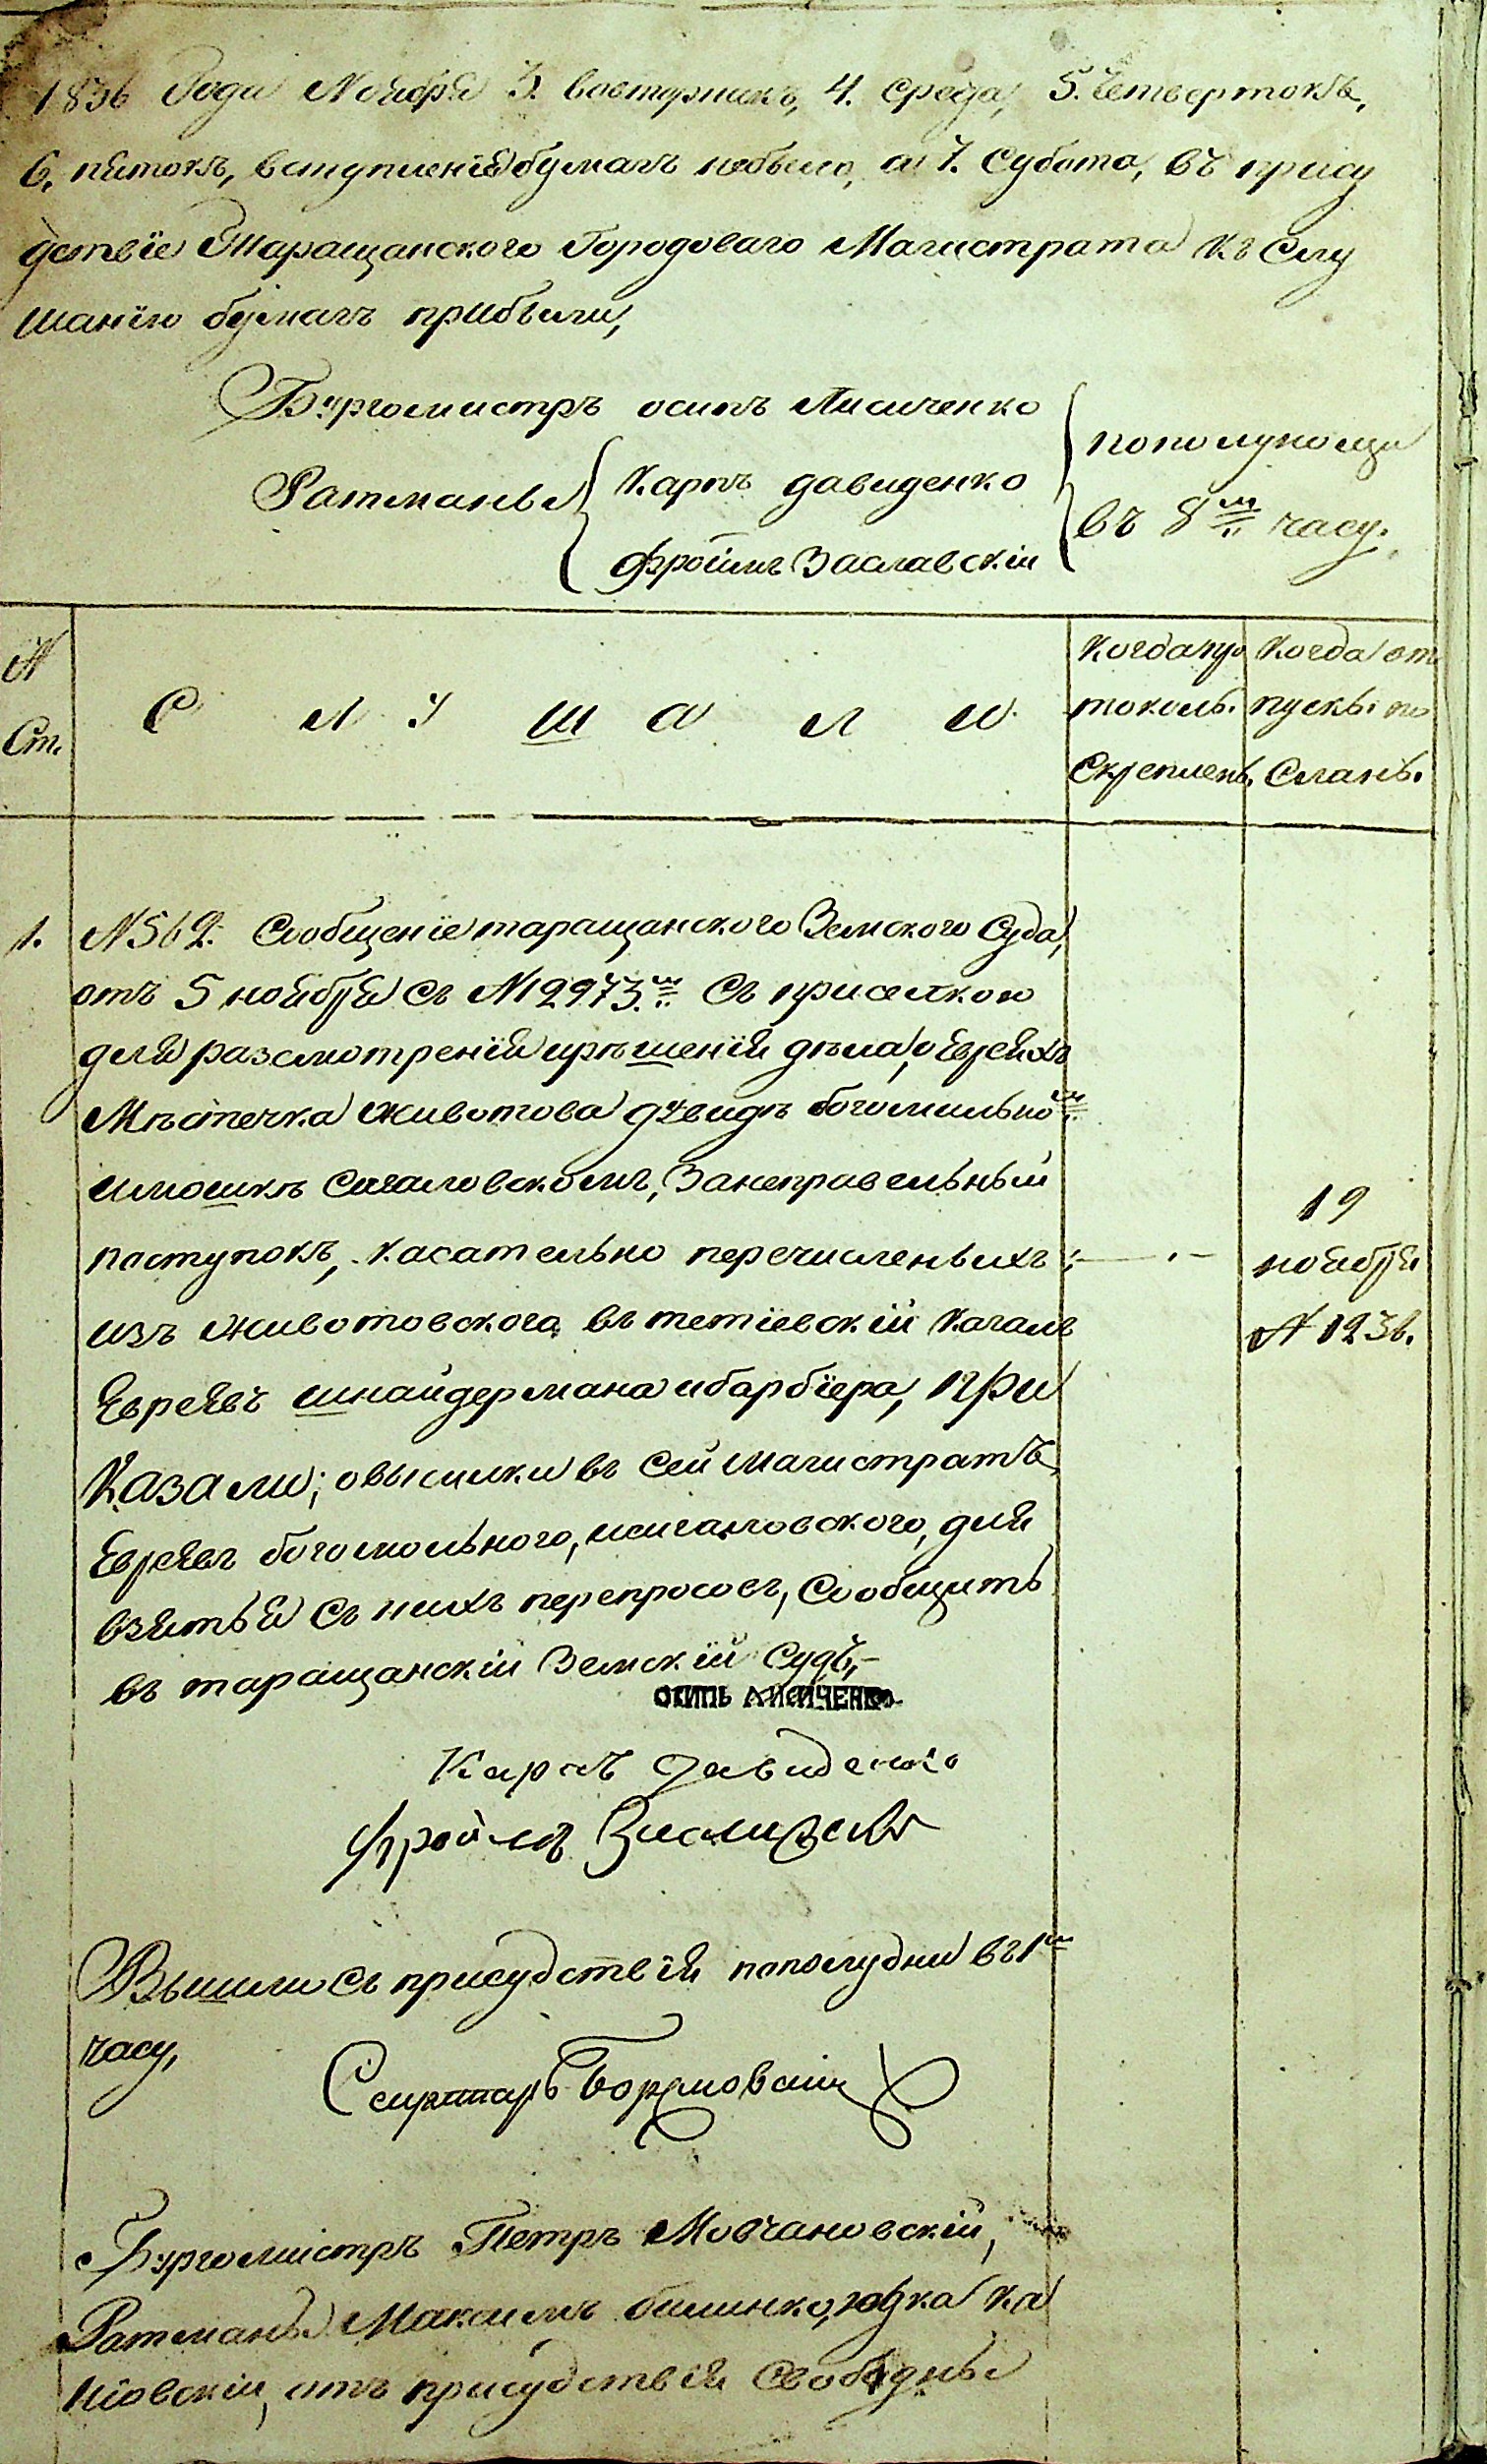 1836 Года Ноября 3. вовторникъ, 4. Среда, 5. Четвертокъ,
6. пятокъ, вступленія бумагъ небыло, а 7. Субота, въ прису
дствіе Таращанского Городоваго Магистрата къ Слу
шанію бумагъ прибыли,
Бургомистръ осипъ Лисиченко
Ратманы
Карпъ давиденко
Фроимъ Заславскій
пополуночи
въ 8м часу.
№
Ст.
С Л У Ш А Л И
Когда про
токолъ.
Скреплень.
Когда от
пускъ. по
Сланъ.
1. №562. Сообщеніе таращанского Земского Суда,
отъ 5 ноября съ №2973м Съ приселкою
для разсмотренія ирѣшенія дѣла, о Евреяхъ
Мѣстечка Животова дувидѣ богомильном
имошкѣ Сагаловскомъ, Занеправельный
поступокъ, касательно перечисленыхъ
изъ животовскога въ тетіевскій Кагалъ
Евреявъ шнайдермана ибарбіера, при
казали; овысилки въ сей магистратъ,
Евреявъ богомольного, исигаловского, для
взятья съ нихъ перепросовъ, Сообщить
въ таращанскій Земскій Судъ,
19
ноября
№ 1236.
ОСИПЬ ЛИСИЧЕНКО
Карпъ Давиденко
Фроймъ Заславскі
Вышли съ присудствія пополудни въ1м
часу,
Бургомистръ Петръ Мовчановскій,
Ратманы Максимъ билинко, юдка Ка
ніовскій, отъ присудствія Свободны